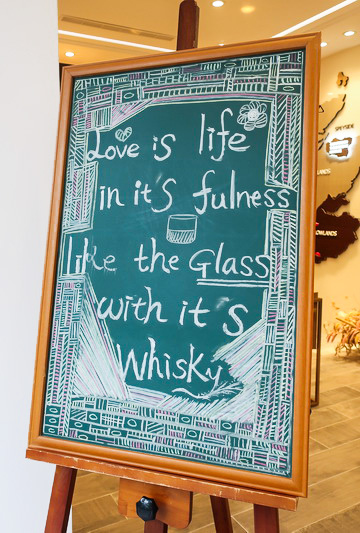 Love is life
in it's fulness
like the Glass
with it's
Whisky
SPEYSIDE